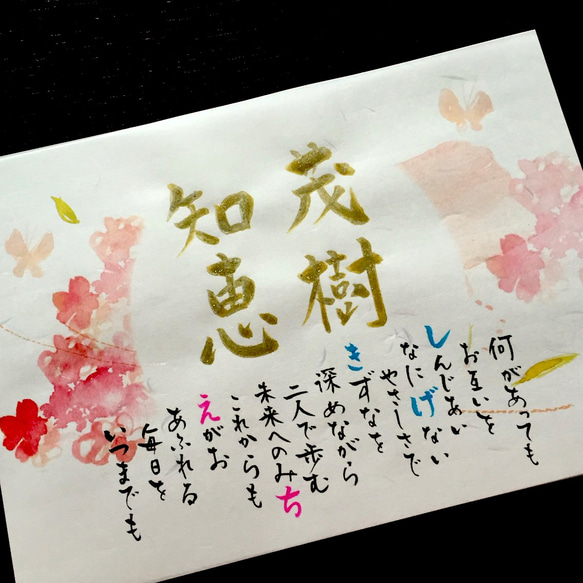 茂樹
知恵
何があっても
お互いを
しんじあい
なにげない
やさしさで
きずなを
深めながら
二人で歩む
未来へのみち
これからも
えがお
あふれる
毎日を
いつまでも